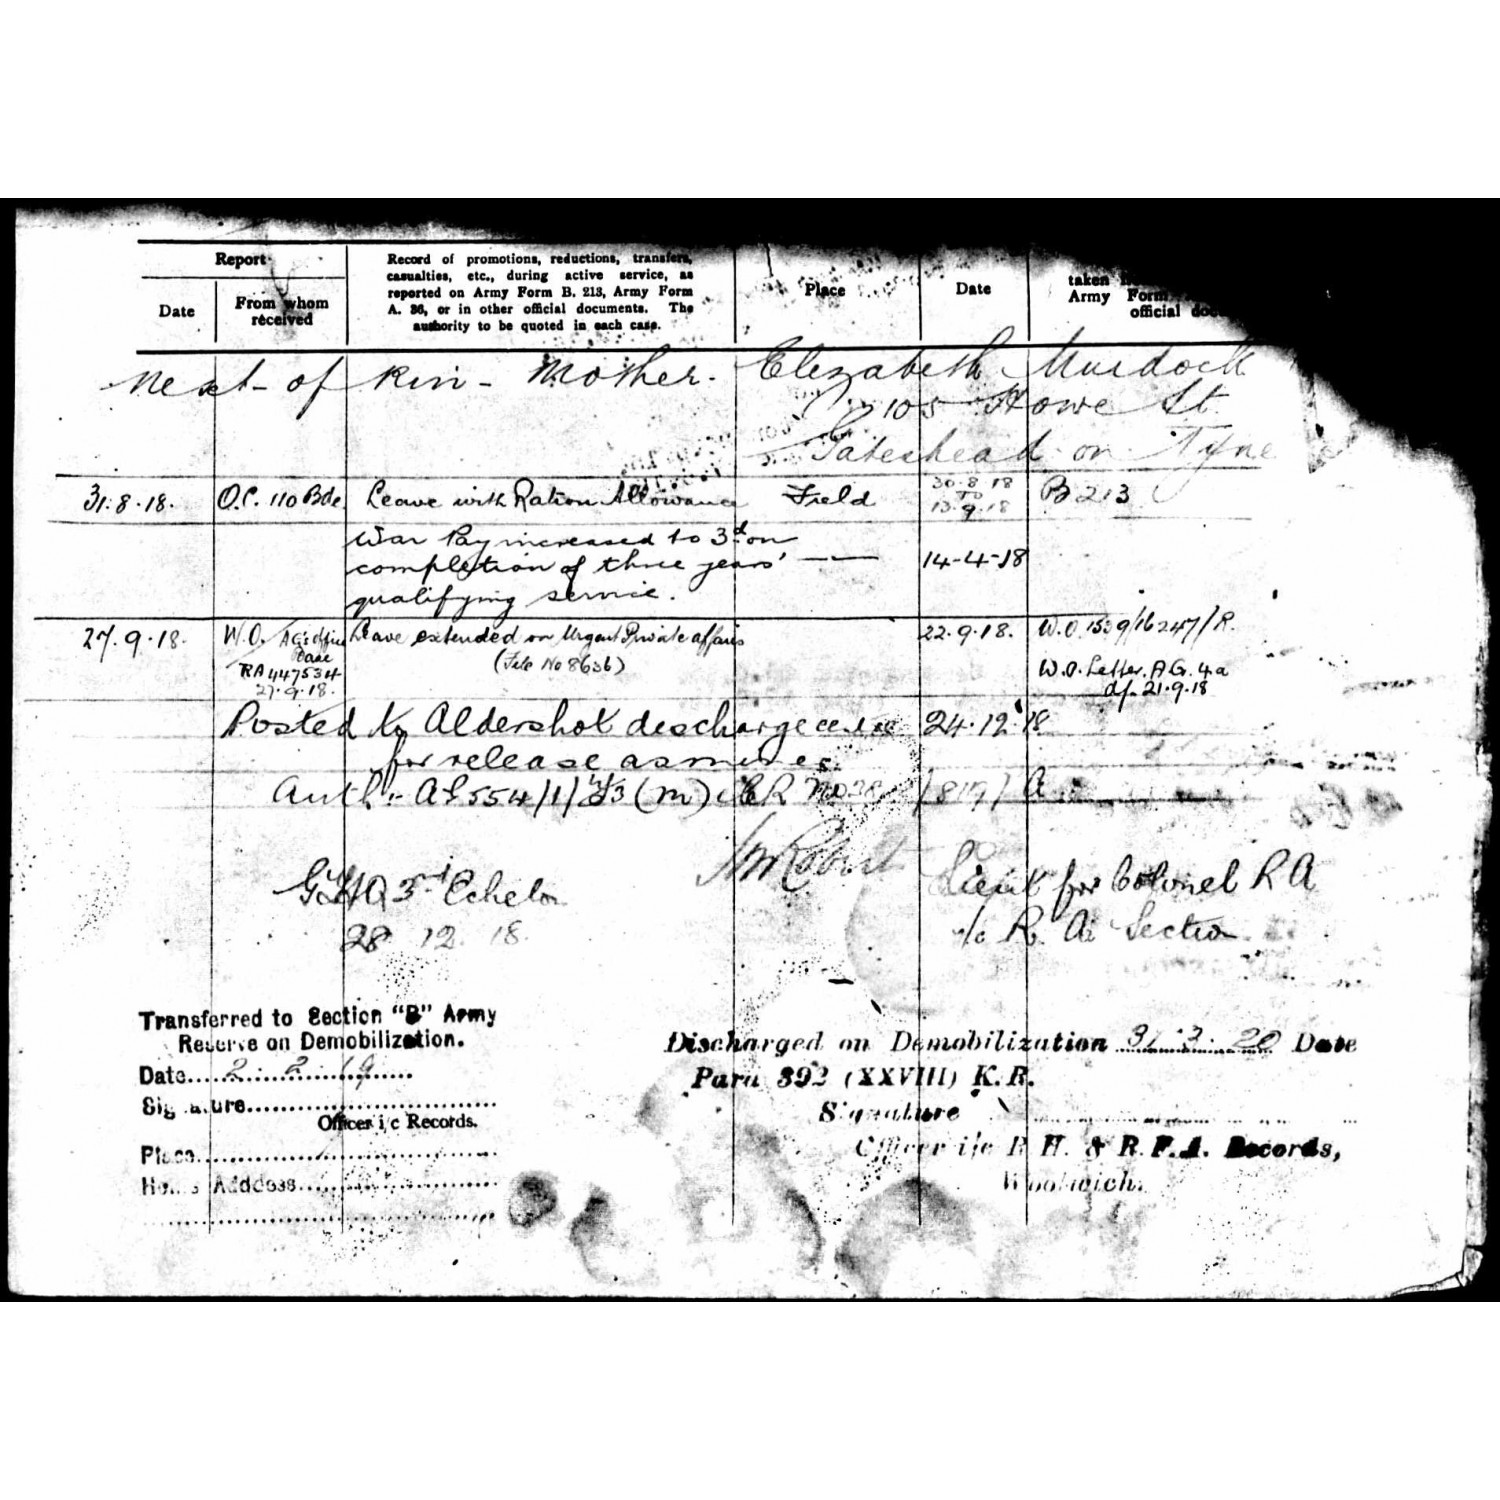 Report
Date
From whom received
Record of promotions, reductions, transfers,
casualties, etc., during active service, as
reported on Army Form B. 213, Army Form
A. 36, or in other official documents. The
authority to be quoted in each case.
Place
Date
taken
Army Form
official
Next of Kin - Mother. Elizabeth Murdock
105 Howe St
Gateshead on Tyne
31.8.18. O.C. 110 Bde Leave with Ration Allowance Field 30.8.18 TO 13.9.18 B213
War Pay increased to 3d on
completion of three years' —— 14-4-18
qualifying service.
27.9.18. W.O. Leave extended on Urgent Private affairs 22.9.18. W.O. /16247/R.
AG's Office
Base
(File No 8636)
RA447534
27.9.18.
W.O. Letter. A.G. 4a
d/- 21.9.18
Posted to Aldershot discharge centre 24.12.18
for release as miner.
Auth:- AG554/1/ (M) /817/A
Lieut for Colonel R A
GHQ 3rd Echelon
i/c R. A. Section
28 12 18.
Transferred to Section "B" Army
Reserve on Demobilization.
Date 2.2.19
Signature
Officer i/c Records.
Place
Home Address
Discharged on Demobilization 31.3.20 Date
Para 392 (XXVIII) K.R.
Signature
Officer i/c R H. & R.F.A. Records,
Woolwich.